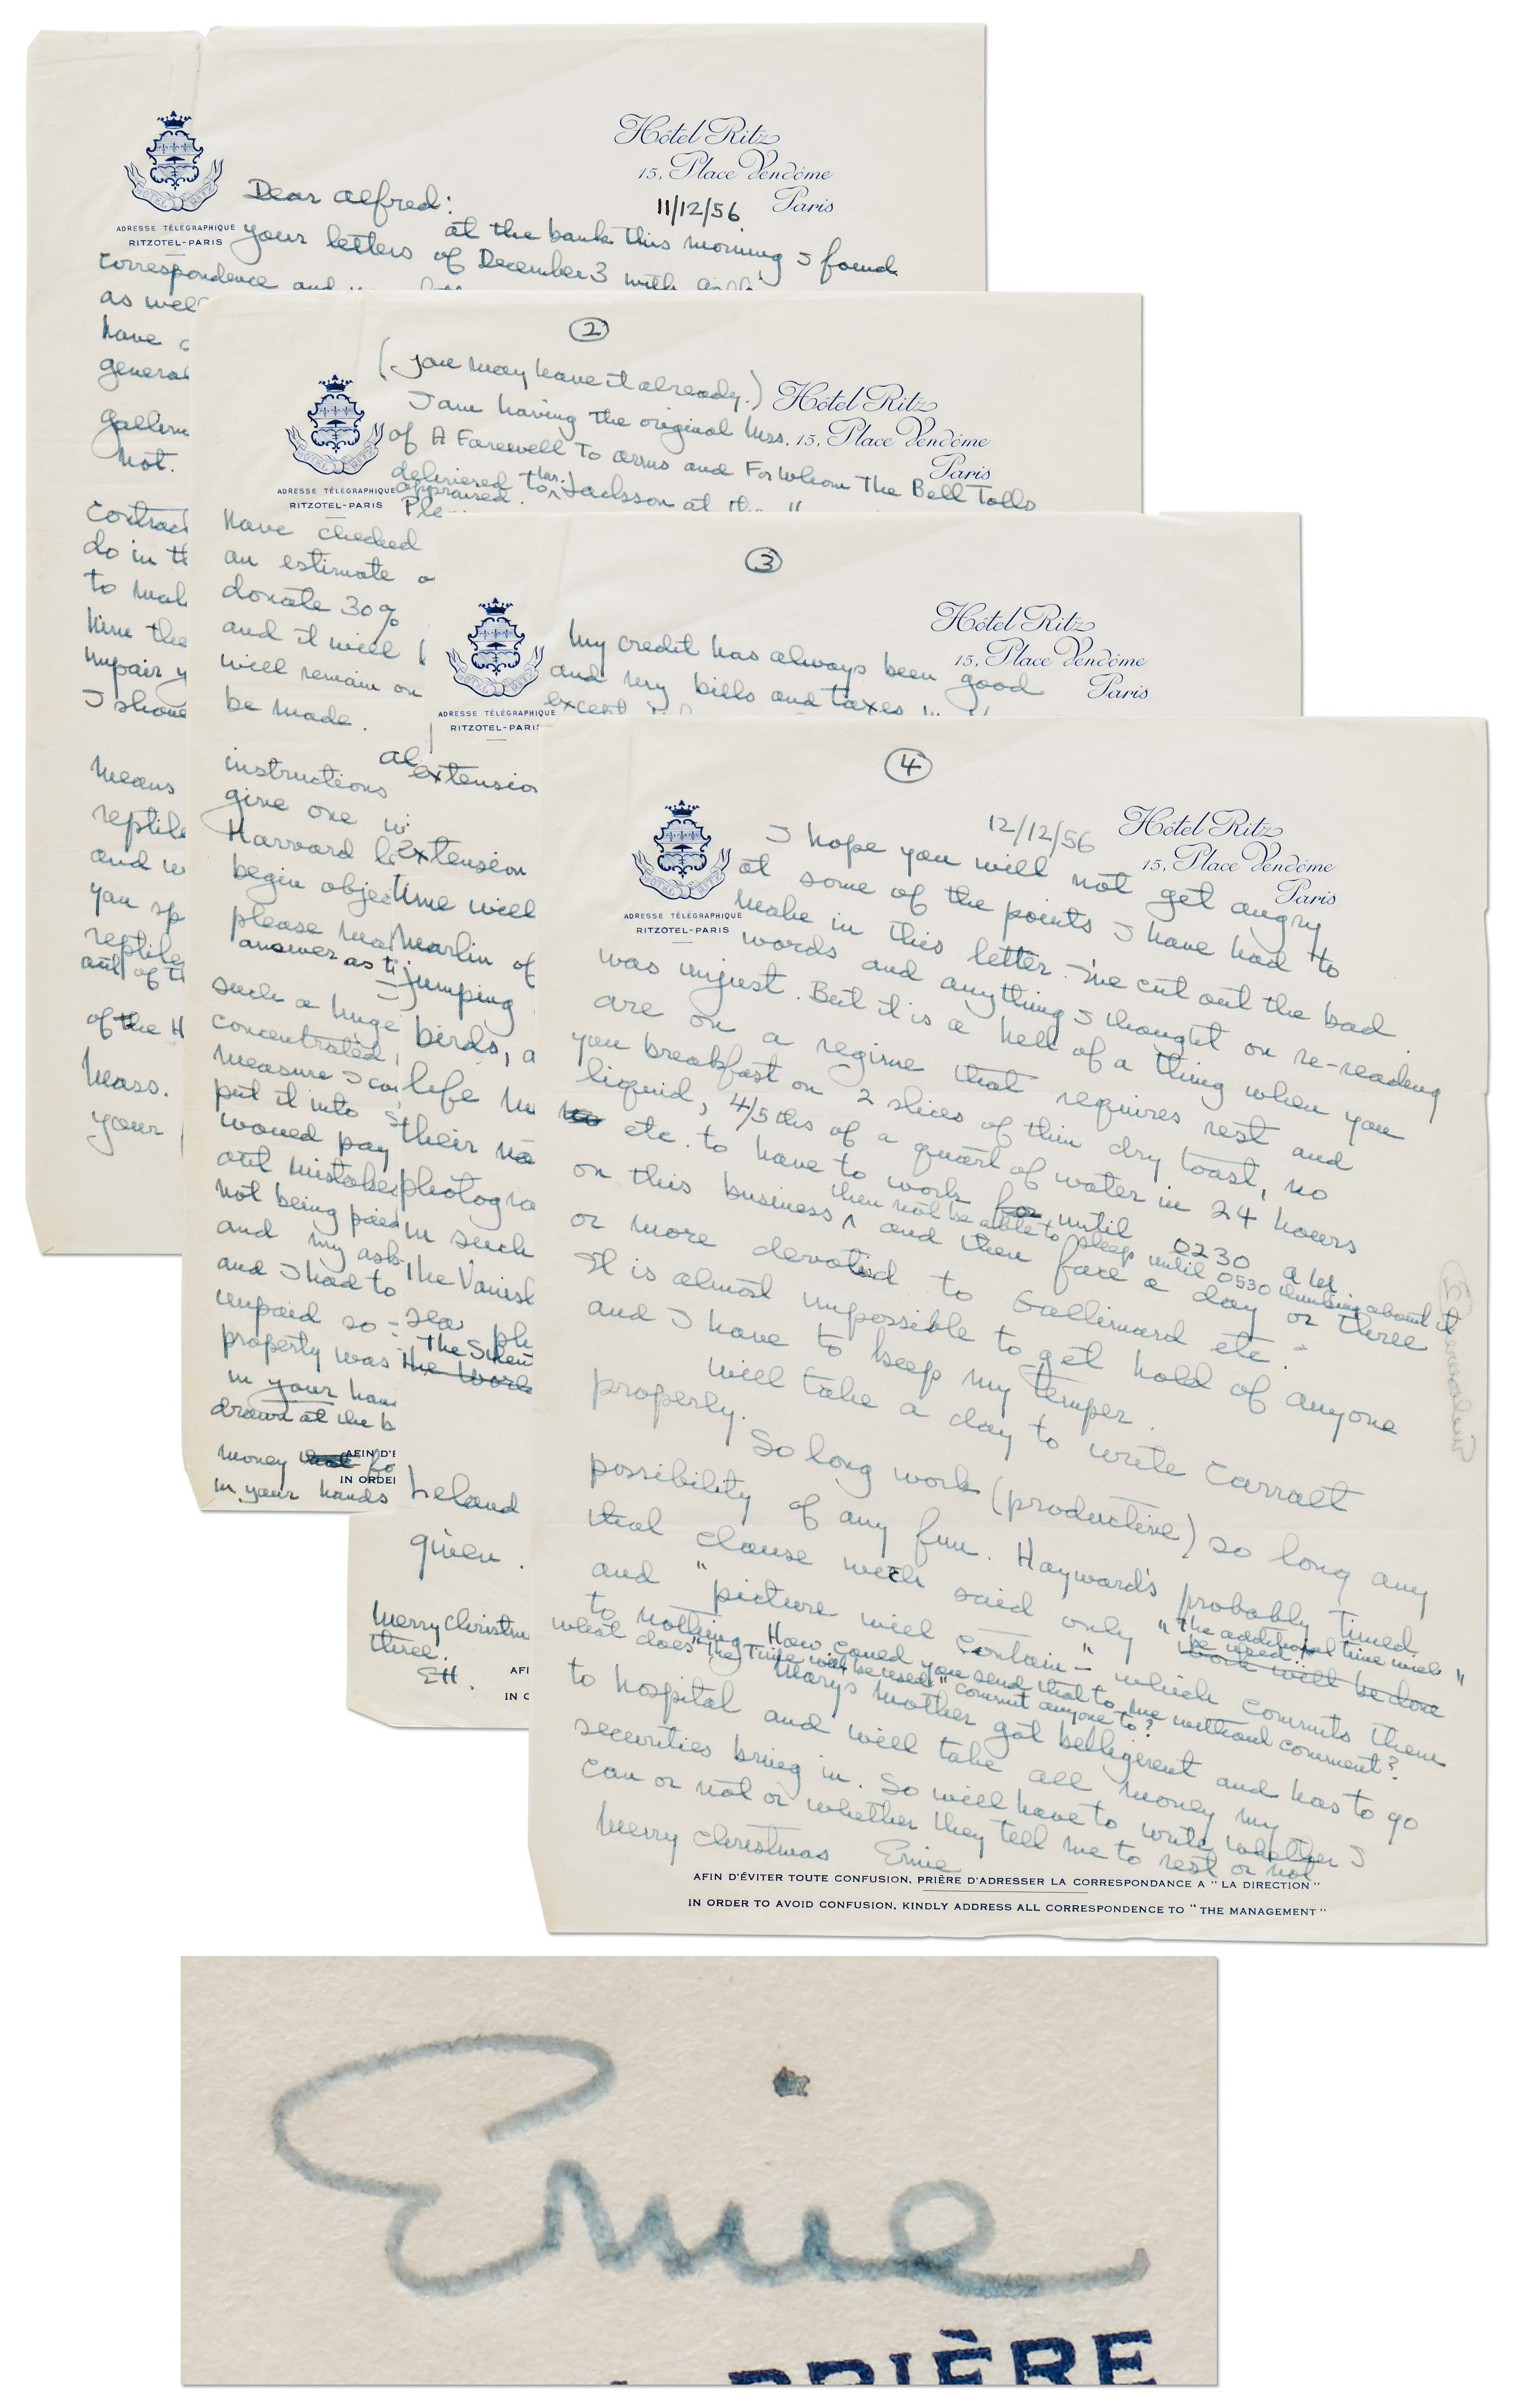 Hôtel Ritz
15, Place Vendôme
Paris
HÔTEL RITZ
ADRESSE TÉLÉGRAPHIQUE
RITZOTEL-PARIS
11/12/56
Dear Alfred:
at the bank this morning I found
your letters of December 3 with
correspondence and
as well
have
general
not.
contract
do in th
to mak
him the
impair y
I shou
means
reptile
and w
you sp
reptile
out of th
of the H
Mass.
your
2
(you may have it already.)
Hôtel Ritz
15, Place Vendôme
Paris
HÔTEL RITZ
ADRESSE TÉLÉGRAPHIQUE
RITZOTEL-PARIS
I am having the original Mss.
of A Farewell To Arms and For Whom The Bell Tolls
delivered to Mr. Jackson at the
appraised.
Ple
have checked
an estimate o
donate 30%
and it will
will remain on
be made.
instructions
give one
Harvard
begin objec
please
answer as
such a huge
concentrated
measure I
put it into
would pay
out mistakes
not being paid
and my ask
and I had to
unpaid so
property was
in your han
drawn at the b
money fo
in your hands
AFIN D'É
IN ORDER
3
Hôtel Ritz
15, Place Vendôme
Paris
HÔTEL RITZ
ADRESSE TÉLÉGRAPHIQUE
RITZOTEL-PARIS
My credit has always been good
and my bills and taxes
except
extension
extension
time will
marlin of
jumping
birds, a
life
their
photogra
in such
the Vanish
sea
The Silen
the World
Leland
given.
Merry Christm
three.
EH.
AFI
IN O
4
12/12/56
Hôtel Ritz
15, Place Vendôme
Paris
HÔTEL RITZ
ADRESSE TÉLÉGRAPHIQUE
RITZOTEL-PARIS
I hope you will not get angry
at some of the points I have had to
make in this letter. I've cut out the bad
words and anything I thought on re-reading
was unjust. But it is a hell of a thing when you
are on a regime that requires rest and
you breakfast on 2 slices of thin dry toast, no
liquid, 4/5ths of a quart of water in 24 hours
etc. to have to work for until 0230 am
on this business then not be able to sleep until 0530 thinking about it
and then face a day or three
or more devoted to Gallimard etc.
It is almost impossible to get hold of anyone
and I have to keep my temper.
Will take a day to write Carralt
properly.
So long work (productive) so long any
possibility of any fun. Hayward's probably timed
that clause well said only "the additional time will be used"
work will be done
and "picture will contain - " which commits them
to nothing. How could you send that to me without comment?
What does "the Time will be used" commit anyone to?
Mary's mother got belligerent and has to go
to hospital and will take all money my
securities bring in. So will have to write whether I
can or not or whether they tell me to rest or not
Merry Christmas Ernie
AFIN D'ÉVITER TOUTE CONFUSION, PRIÈRE D'ADRESSER LA CORRESPONDANCE A "LA DIRECTION"
IN ORDER TO AVOID CONFUSION, KINDLY ADDRESS ALL CORRESPONDENCE TO "THE MANAGEMENT"
Ernie
PRIÈRE